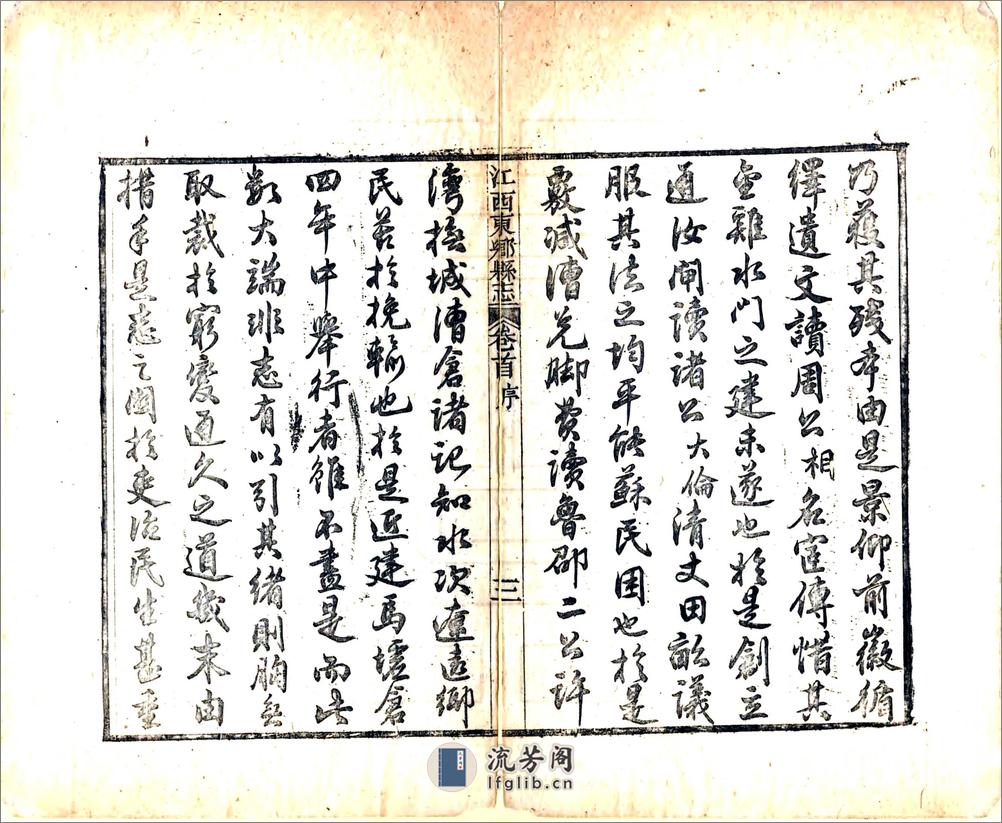 乃蒐其殘本由是景仰前徽循
繹遺文讀周公相名宦傳惜其
金雞水門之建未遂也於是創立
通汝閘讀諸公大倫清丈田畝議
服其法之均平能蘇民困也於是
覈減漕兌脚費讀魯邵二公許
江西東鄉縣志 卷首 序 三
灣撫城漕倉諸記知水次遼遠鄉
民苦於挽輸也於是近建馬墟倉
四年中舉行者雖不盡是而此
數大端非志有以引其緒則胸無
取裁於窮變通久之道幾末由
措手是志之關於吏治民生甚重
流芳阁
lfglib.cn